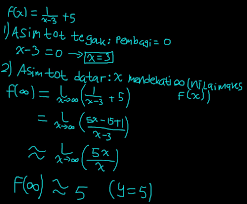 f(x) = 1/(x-3) + 5
1) Asimtot tegak: Pembagi = 0
x-3=0 → x=3
2) Asimtot datar: x mendekati ∞ (nilai maks F(x))
f(∞) = L x→∞ (1/(x-3) + 5)
= L x→∞ ((5x-15+1)/(x-3))
≈ L x→∞ (5x/x)
F(∞) ≈ 5 (y=5)